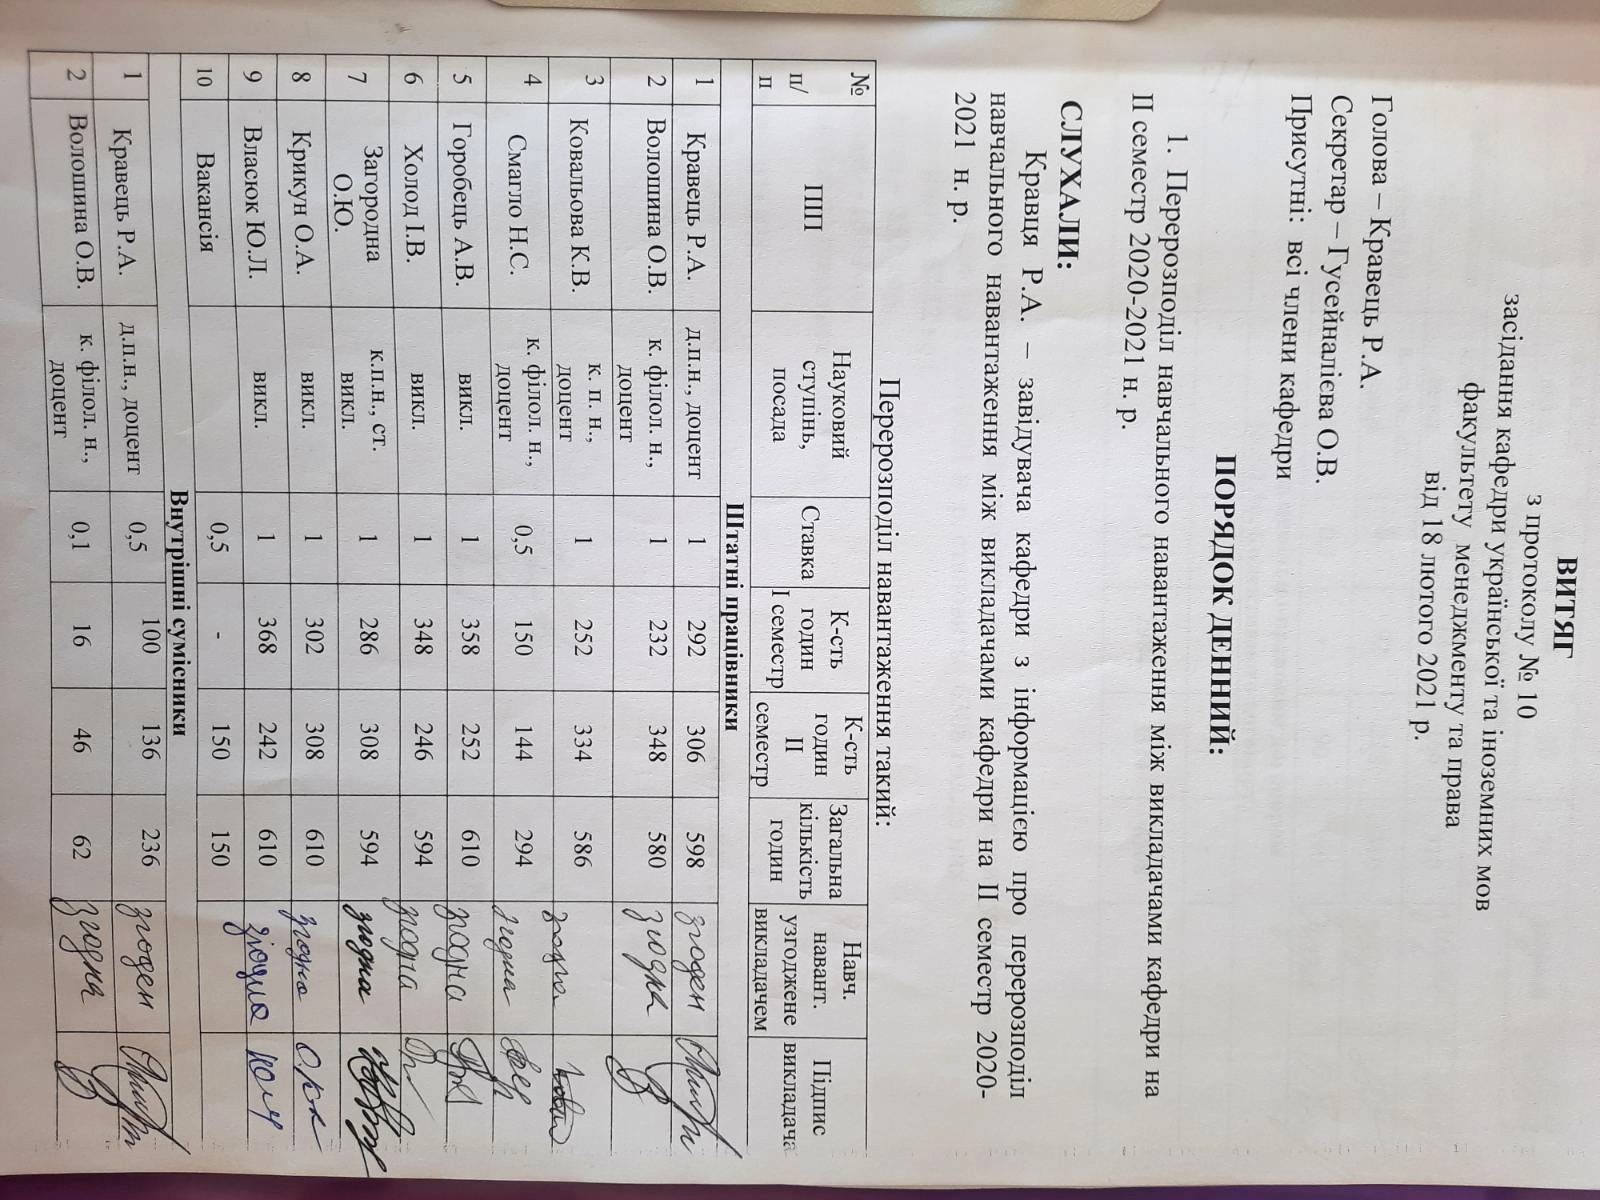 ВИТЯГ
з протоколу № 10
засідання кафедри української та іноземних мов
факультету менеджменту та права
від 18 лютого 2021 р.
Голова – Кравець Р.А.
Секретар – Гусейналієва О.В.
Присутні: всі члени кафедри
ПОРЯДОК ДЕННИЙ:
1. Перерозподіл навчального навантаження між викладачами кафедри на
ІІ семестр 2020-2021 н. р.
СЛУХАЛИ:
Кравця Р.А. – завідувача кафедри з інформацією про перерозподіл
навчального навантаження між викладачами кафедри на ІІ семестр 2020-
2021 н. р.
Перерозподіл навантаження такий:
№ п/п ПІП Науковий ступінь, посада Ставка К-сть годин І семестр К-сть годин ІІ семестр Загальна кількість годин Навч. навант. узгоджене викладачем Підпис викладача
Штатні працівники
1 Кравець Р.А. д.п.н., доцент 1 292 306 598 згоден
2 Волошина О.В. к. філол. н., доцент 1 232 348 580 згодна
3 Ковальова К.В. к. п. н., доцент 1 252 334 586 згодна
4 Смагло Н.С. к. філол. н., доцент 0,5 150 144 294 згодна
5 Горобець А.В. викл. 1 358 252 610 згодна
6 Холод І.В. викл. 1 348 246 594 згодна
7 Загородна О.Ю. к.п.н., ст. викл. 1 286 308 594 згодна
8 Крикун О.А. викл. 1 302 308 610 згодна
9 Власюк Ю.Л. викл. 1 368 242 610 згодна
10 Вакансія 0,5 - 150 150
Внутрішні сумісники
1 Кравець Р.А. д.п.н., доцент 0,5 100 136 236 згоден
2 Волошина О.В. к. філол. н., доцент 0,1 16 46 62 згодна